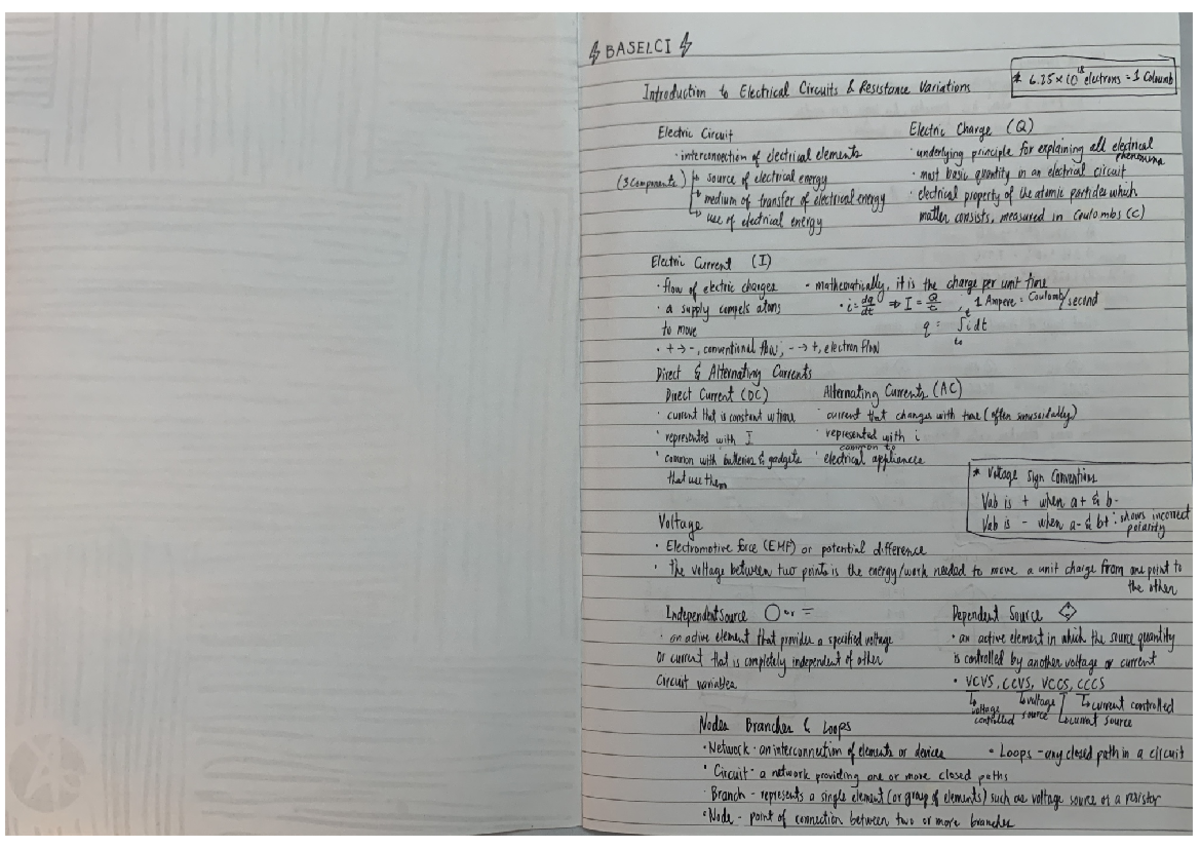 ⚡BASELCI⚡
* 6.25×10¹⁸ electrons = 1 Coloumb
Introduction to Electrical Circuits & Resistance Variations
Electric Circuit
· interconnection of electrical elements
(3 Components) ↳ source of electrical energy
↳ medium of transfer of electrical energy
↳ use of electrical energy
Electric Charge (Q)
· underlying principle for explaining all electrical phenomena
· most basic quantity in an electrical circuit
· electrical property of the atomic particles which
matter consists, measured in Coulombs (C)
Electric Current (I)
· flow of electric charges
· a supply compels atoms
to move
· + → -, conventional flow; - → +, electron flow
· mathematically, it is the charge per unit time
· i = dq/dt ⇒ I = Q/t , 1 Ampere = Coulomb/second
q = ∫ₜ₀ᵗ i dt
Direct & Alternating Currents
Direct Current (DC)
· current that is constant w/ time
· represented with I
· common with batteries & gadgets
that use them
Alternating Currents (AC)
· current that changes with time (often sinusoidally)
· represented with i
· common to electrical appliances
* Voltage Sign Conventions
Vab is + when a+ & b-
Vab is - when a- & b+ : shows incorrect
polarity
Voltage
· Electromotive force (EMF) or potential difference
· the voltage between two points is the energy/work needed to move a unit charge from one point to
the other
Independent Source ○ or =
· an active element that provides a specified voltage
or current that is completely independent of other
circuit variables
Dependent Source ◇
· an active element in which the source quantity
is controlled by another voltage or current
· VCVS, CCVS, VCCS, CCCS
↳ voltage controlled ↳ voltage source ↳ current source ↳ current controlled
Nodes Branches & Loops
· Network - an interconnection of elements or devices
· Loops - any closed path in a circuit
· Circuit - a network providing one or more closed paths
· Branch - represents a single element (or group of elements) such as voltage source or a resistor
· Node - point of connection between two or more branches